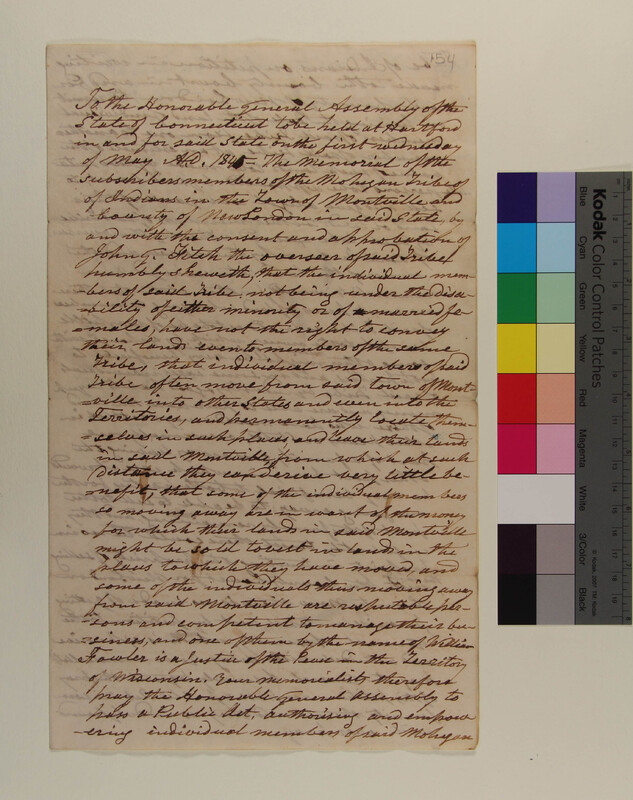 154
To the Honorable general Assembly of the
State of Connecticut to be held at Hartford
in and for said State on the first wednesday
of May A.D. 1845 - The Memorial of the
subscribers members of the Mohegan Tribe of
of Indians in the Town of Montville and
County of New London in said State, by
and with the consent and approbation of
John G. Fitch the overseer of said Tribe,
humbly sheweth, that the individual mem-
-bers of said Tribe, not being under the disa-
-bility of either minority or of married fe-
-males, have not the right to convey
their lands even to members of the same
Tribe, that individual members of said
Tribe often move from said town of Mont-
-ville into other States and even into the
Territories, and permanently locate them-
-selves in such places, and leave their lands
in said Montville, from which at such
distance they can derive very little be-
-nefit, that some of the individual members
so moving away are in want of the money
for which their lands in said Montville
might be sold to vest in lands in the
places to which they have moved, and
some of the individuals thus moving away
from said Montville are respectable per-
-sons and competent to manage their bu-
-siness, and one of them by the name of William
Fowler is a Justice of the Peace in the Territory
of Wisconsin. Your memorialists therefore
pray the Honorable general Assembly to
pass a Public Act, authorising and empow-
-ering individual members of said Mohegan
Kodak Color Control Patches
Blue
Cyan
Green
Yellow
Red
Magenta
White
3/Color
Black